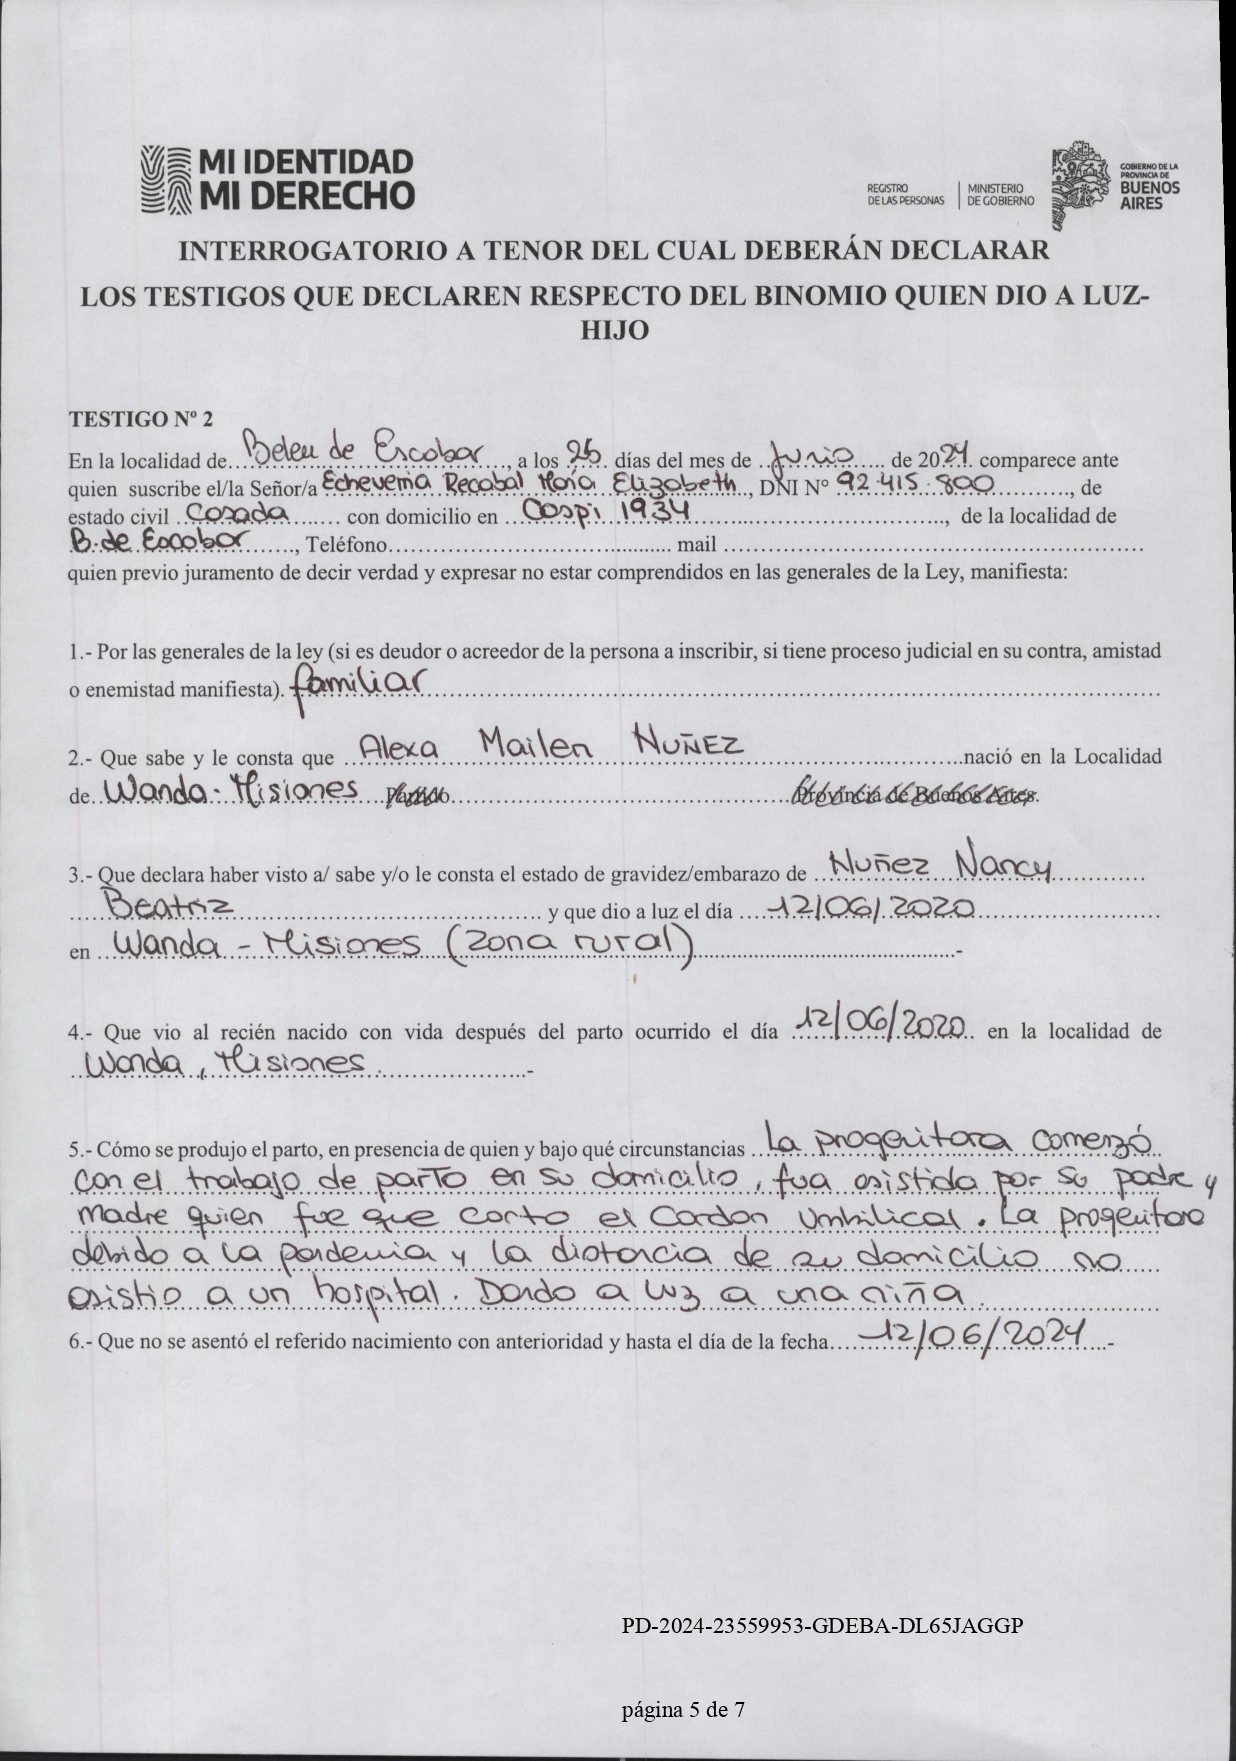 MI IDENTIDAD
MI DERECHO
REGISTRO
DE LAS PERSONAS
MINISTERIO
DE GOBIERNO
GOBIERNO DE LA
PROVINCIA DE
BUENOS
AIRES
INTERROGATORIO A TENOR DEL CUAL DEBERÁN DECLARAR
LOS TESTIGOS QUE DECLAREN RESPECTO DEL BINOMIO QUIEN DIO A LUZ-
HIJO
TESTIGO Nº 2
En la localidad de Belen de Escobar, a los 26 días del mes de Junio de 2024 comparece ante
quien suscribe el/la Señor/a Echeverria Recabal Maria Elizabeth, DNI Nº 92.415.800, de
estado civil Casada con domicilio en Caspi 1934, de la localidad de
B. de Escobar, Teléfono mail
quien previo juramento de decir verdad y expresar no estar comprendidos en las generales de la Ley, manifiesta:
1.- Por las generales de la ley (si es deudor o acreedor de la persona a inscribir, si tiene proceso judicial en su contra, amistad
o enemistad manifiesta). familiar
2.- Que sabe y le consta que Alexa Mailen NUÑEZ nació en la Localidad
de Wanda - Misiones Partido Provincia de Buenos Aires.
3.- Que declara haber visto a/ sabe y/o le consta el estado de gravidez/embarazo de Nuñez Nancy
Beatriz y que dio a luz el día 12/06/2020
en Wanda - Misiones (Zona rural) -
4.- Que vio al recién nacido con vida después del parto ocurrido el día 12/06/2020 en la localidad de
Wanda, Misiones. -
5.- Cómo se produjo el parto, en presencia de quien y bajo qué circunstancias La progenitora comenzó
con el trabajo de parto en su domicilio, fua asistida por su padre y
madre quien fue que corto el Cordon Umbilical. La progenitora
debido a la pandemia y la distancia de su domicilio no
asistio a un hospital. Dando a luz a una niña.
6.- Que no se asentó el referido nacimiento con anterioridad y hasta el día de la fecha 12/06/2024 -
PD-2024-23559953-GDEBA-DL65JAGGP
página 5 de 7